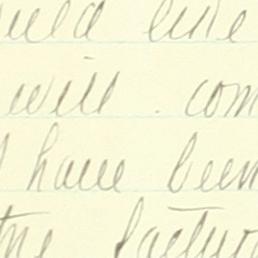 like
will . com
I have been
the factor